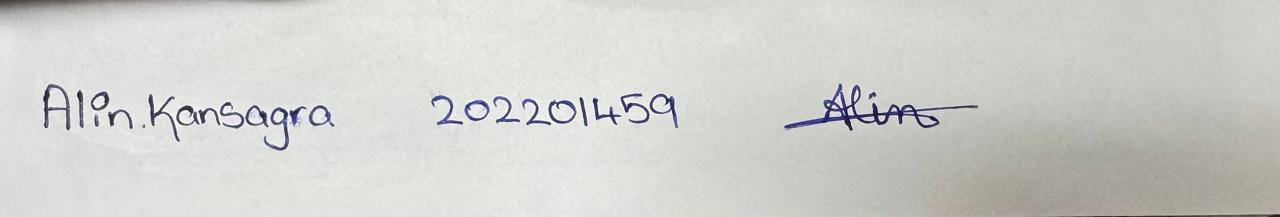 Alin.Kansagra 202201459 Alin